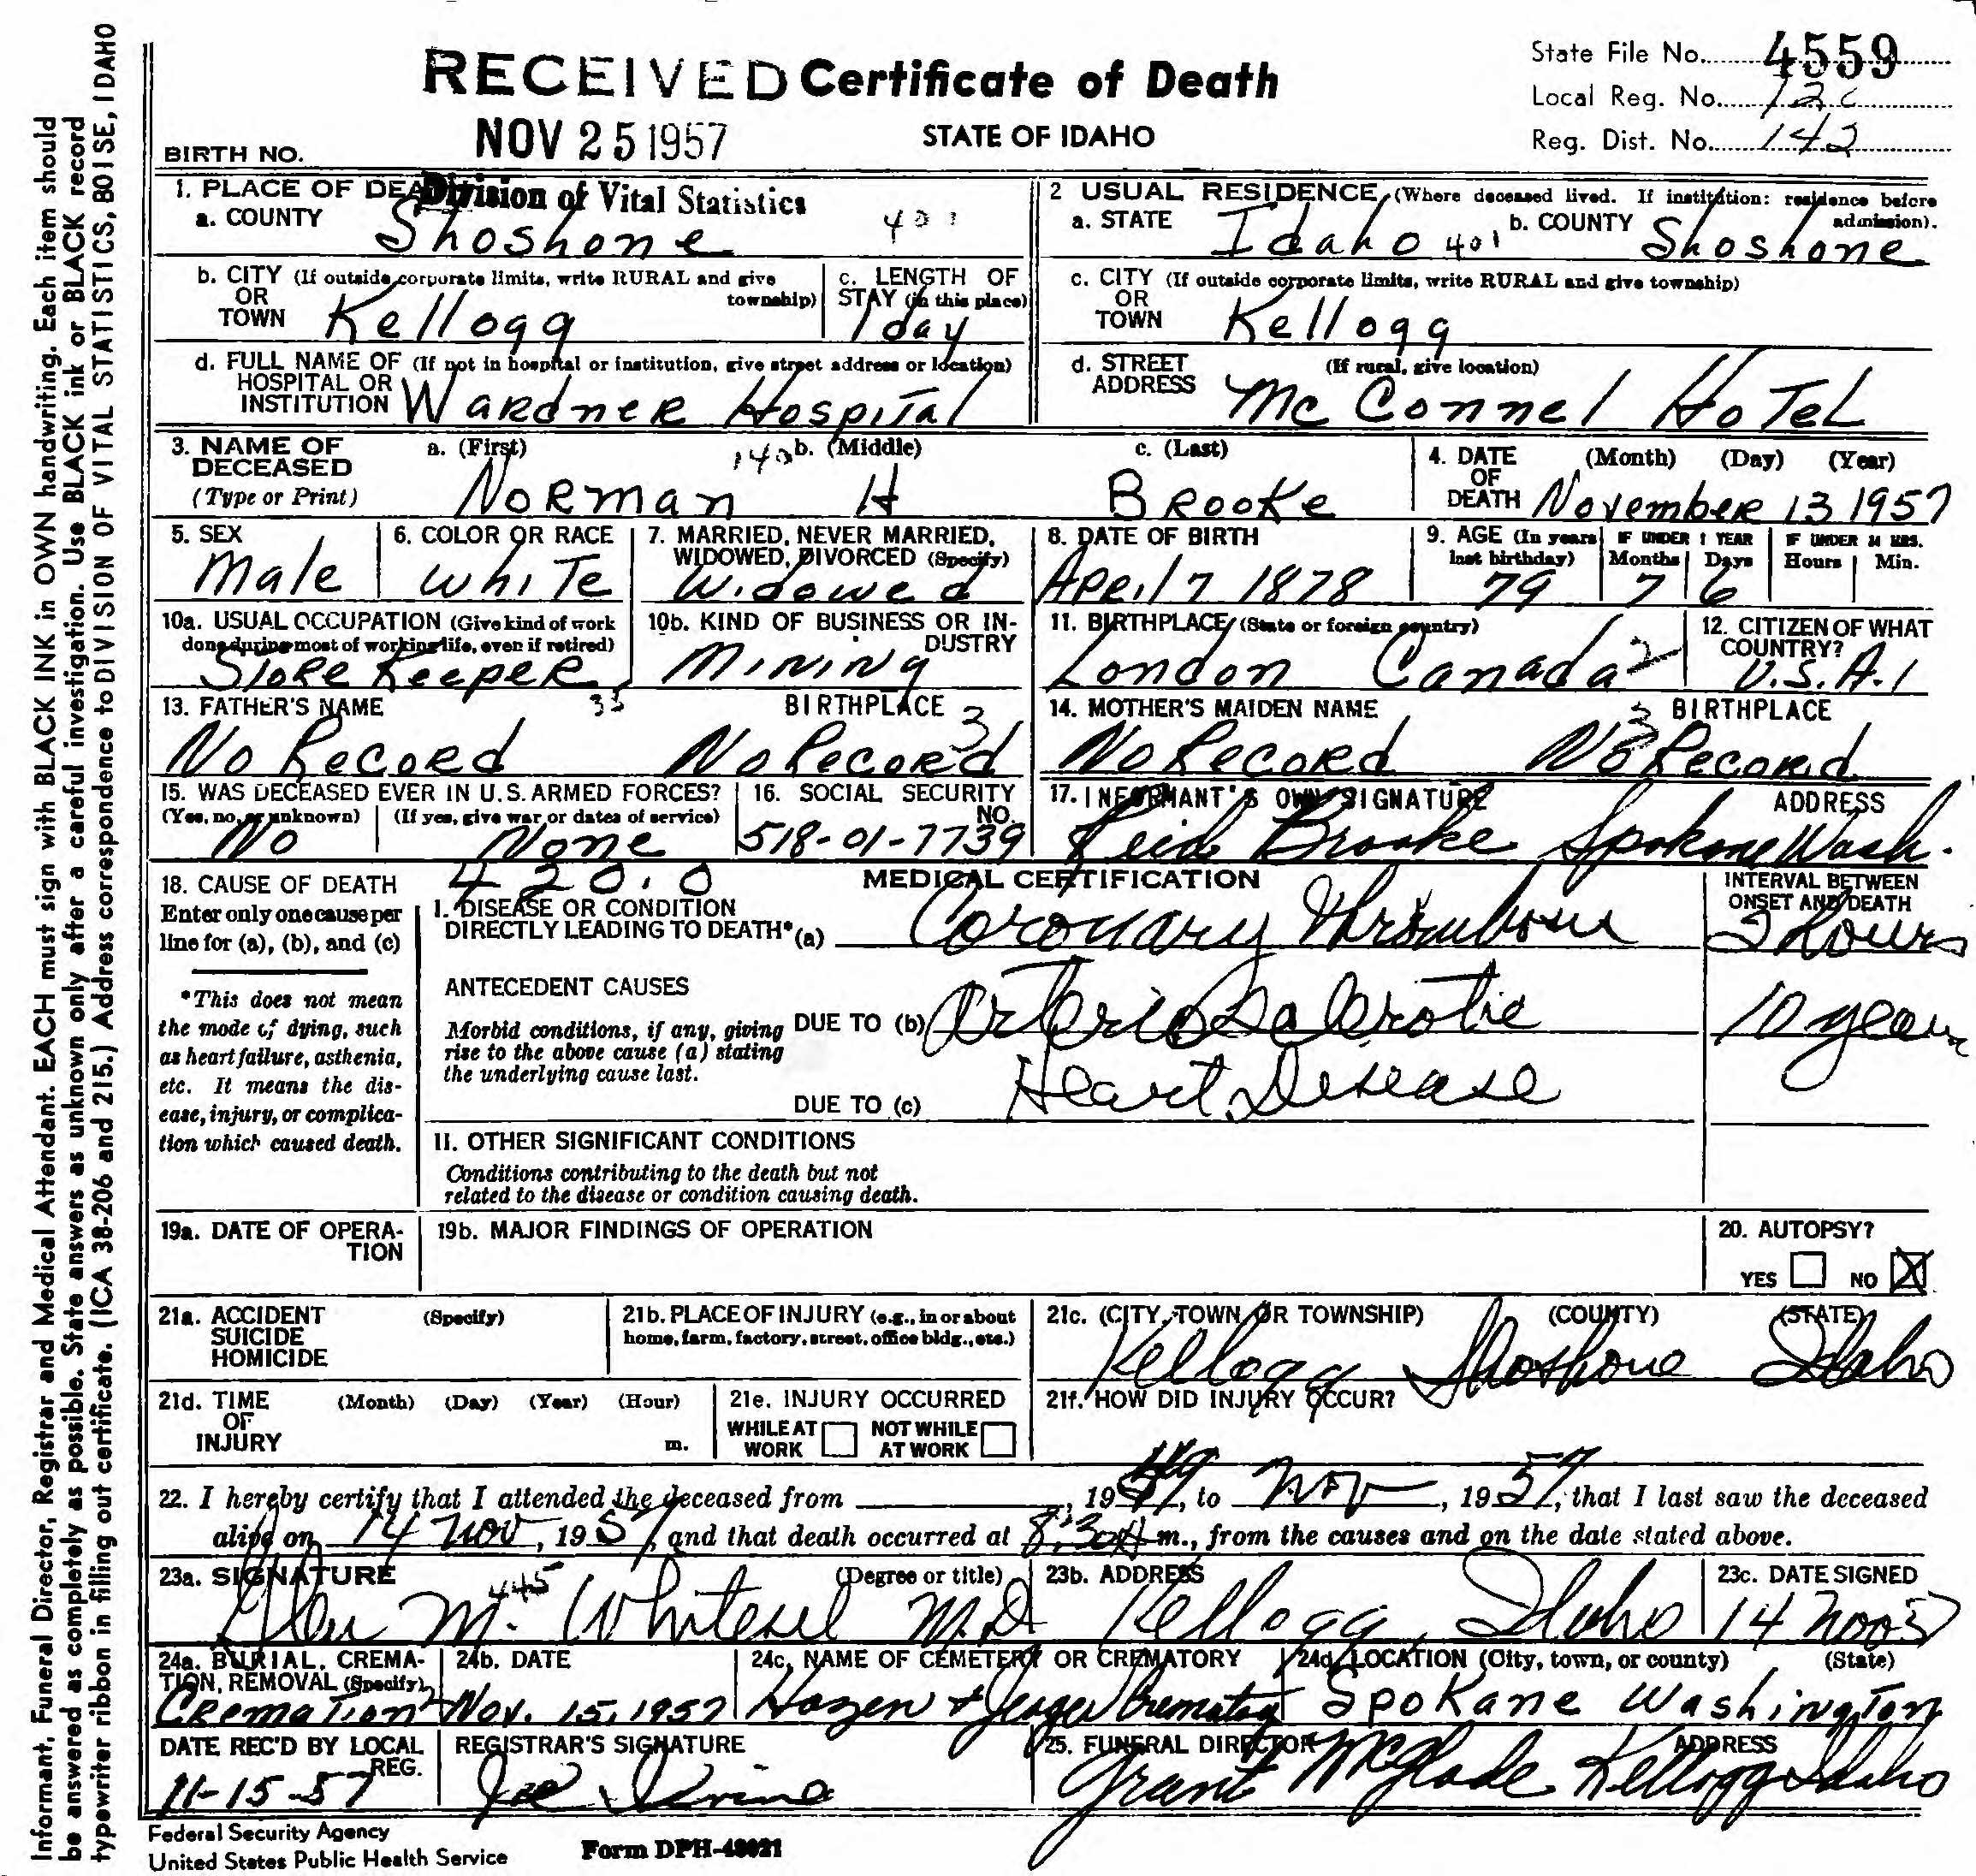 State File No. 4559
RECEIVED Certificate of Death
Local Reg. No.
NOV 25 1957
STATE OF IDAHO
Reg. Dist. No. 142
BIRTH NO.
Division of Vital Statistics
1. PLACE OF DEATH
a. COUNTY Shoshone 401
2 USUAL RESIDENCE (Where deceased lived. If institution: residence before admission).
a. STATE Idaho 401 b. COUNTY Shoshone
b. CITY (If outside corporate limits, write RURAL and give township)
OR
TOWN Kellogg
c. LENGTH OF
STAY (in this place)
1 day
c. CITY (If outside corporate limits, write RURAL and give township)
OR
TOWN Kellogg
d. FULL NAME OF (If not in hospital or institution, give street address or location)
HOSPITAL OR
INSTITUTION Wardner Hospital
d. STREET (If rural, give location)
ADDRESS Mc Connel Hotel
3. NAME OF
DECEASED
(Type or Print)
a. (First) Norman
140
b. (Middle) H
c. (Last) Brooke
4. DATE (Month) (Day) (Year)
OF
DEATH November 13 1957
5. SEX
Male
6. COLOR OR RACE
White
7. MARRIED, NEVER MARRIED,
WIDOWED, DIVORCED (Specify)
Widowed
8. DATE OF BIRTH
April 7 1878
9. AGE (In years
last birthday)
79
IF UNDER 1 YEAR
Months Days
7 6
IF UNDER 24 HRS.
Hours Min.
10a. USUAL OCCUPATION (Give kind of work
done during most of working life, even if retired)
Store Keeper
10b. KIND OF BUSINESS OR IN-
DUSTRY
Mining
11. BIRTHPLACE (State or foreign country)
London Canada 2
12. CITIZEN OF WHAT
COUNTRY?
U.S.A. 1
13. FATHER'S NAME 33 BIRTHPLACE 3
No Record No Record
14. MOTHER'S MAIDEN NAME 3 BIRTHPLACE
No Record No Record
15. WAS DECEASED EVER IN U.S. ARMED FORCES?
(Yes, no, or unknown) (If yes, give war or dates of service)
No None
16. SOCIAL SECURITY
NO.
518-01-7739
17. INFORMANT'S OWN SIGNATURE ADDRESS
Reid Brooke Spokane Wash.
18. CAUSE OF DEATH
Enter only one cause per
line for (a), (b), and (c)
*This does not mean
the mode of dying, such
as heart failure, asthenia,
etc. It means the dis-
ease, injury, or complica-
tion which caused death.
420.0
MEDICAL CERTIFICATION
INTERVAL BETWEEN
ONSET AND DEATH
I. DISEASE OR CONDITION
DIRECTLY LEADING TO DEATH* (a) Coronary Thrombosis 2 hours
ANTECEDENT CAUSES
Morbid conditions, if any, giving
rise to the above cause (a) stating
the underlying cause last.
DUE TO (b) Arterio Sclerotic 10 years
Heart Disease
DUE TO (c)
II. OTHER SIGNIFICANT CONDITIONS
Conditions contributing to the death but not
related to the disease or condition causing death.
19a. DATE OF OPERA-
TION
19b. MAJOR FINDINGS OF OPERATION
20. AUTOPSY?
YES NO X
21a. ACCIDENT (Specify)
SUICIDE
HOMICIDE
21b. PLACE OF INJURY (e.g., in or about
home, farm, factory, street, office bldg., etc.)
21c. (CITY, TOWN, OR TOWNSHIP) (COUNTY) (STATE)
Kellogg Shoshone Idaho
21d. TIME (Month) (Day) (Year) (Hour)
OF
INJURY m.
21e. INJURY OCCURRED
WHILE AT NOT WHILE
WORK AT WORK
21f. HOW DID INJURY OCCUR?
22. I hereby certify that I attended the deceased from , 19 49, to Nov , 1957, that I last saw the deceased
alive on 14 Nov, 1957, and that death occurred at 8:30 A m., from the causes and on the date stated above.
23a. SIGNATURE 445 (Degree or title)
Glen M. Whitesel M.D
23b. ADDRESS
Kellogg, Idaho
23c. DATE SIGNED
14 Nov 57
24a. BURIAL, CREMA-
TION, REMOVAL (Specify)
Cremation
24b. DATE
Nov. 15, 1957
24c. NAME OF CEMETERY OR CREMATORY
Hazen & Jaeger Crematory
24d. LOCATION (City, town, or county) (State)
Spokane Washington
DATE REC'D BY LOCAL
REG.
11-15-57
REGISTRAR'S SIGNATURE
Joe Irvine
25. FUNERAL DIRECTOR ADDRESS
Grant McGlade Kellogg Idaho
Federal Security Agency
United States Public Health Service
Form DPH-48021
Informant, Funeral Director, Registrar and Medical Attendant. EACH must sign with BLACK INK in OWN handwriting. Each item should
be answered as completely as possible. State answers as unknown only after a careful investigation. Use BLACK ink or BLACK record
typewriter ribbon in filling out certificate. (ICA 38-206 and 215.) Address correspondence to DIVISION OF VITAL STATISTICS, BOISE, IDAHO